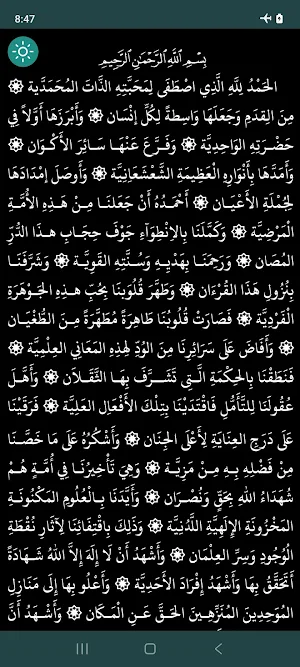 8:47
بِسْمِ اللَّهِ الرَّحْمَٰنِ الرَّحِيمِ
الحَمْدُ لِلَّهِ الَّذِي اصْطَفَى لِمَحَبَّتِهِ الذَّاتَ المُحَمَّدِيَّة ۞
مِنَ القِدَمِ وَجَعَلَهَا وَاسِطَةً لِكُلِّ إِنْسَان ۞ وَأَبْرَزَهَا أَوَّلاً فِي
حَضْرَتِهِ الوَاحِدِيَّة ۞ وَفَرَّعَ عَنْهَا سَائِرَ الأَكْوَان ۞
وَأَمَدَّهَا بِأَنْوَارِهِ العَظِيمَةِ الشَّعْشَعَانِيَّة ۞ وَأَوصَلَ إِمْدَادَهَا
لِجُمْلَةِ الأَعْيَان ۞ أَحْمَدُهُ أَنْ جَعَلَنَا مِنْ هَذِهِ الأُمَّةِ
المَرْضِيَّة ۞ وَكَمَّلَنَا بِالِانْطِوَاءِ جَوْفَ حِجَابِ هذَا الدُّرِّ
المُصَان ۞ وَرَحِمَنَا بِهَدْيِهِ وَسُنَّتِهِ القَوِيَّة ۞ وَشَرَّفَنَا
بِنُزُولِ هَذَا القُرْءَان ۞ وَطَهَّرَ قُلُوبَنَا بِحُبِّ هذِهِ الجَوْهَرَةِ
الفَرْدِيَّة ۞ فَصَارَتْ قُلُوبُنَا طَاهِرَةً مُطَهَّرَةً مِنَ الطُّغْيَان
۞ وَأَفَاضَ عَلَى سَرَائِرِنَا مِنَ الوُدِّ لِهذِهِ المَعَانِي العِلْمِيَّة ۞
فَنَطَقْنَا بِالحِكْمَةِ الَّتِي تَشَرَّفَ بِهَا الثَّقَلَان ۞ وَأَهَّلَ
عُقُولَنَا لِلتَّأَمُّلِ فَاقْتَدَيْنَا بِتِلْكَ الأَفْعَالِ العَلِيَّة ۞ فَرَقَيْنَا
عَلَى دَرَجِ العِنَايَةِ لِأَعْلَى الجِنَان ۞ وَأَشْكُرُهُ عَلَى مَا خَصَّنَا
مِنْ فَضْلِهِ بِهِ مِنْ مَزِيَّة ۞ وَهِيَ تَأْخِيرُنَا فِي أُمَّةٍ هُمْ
شُهَدَاءُ اللهِ بِحَقٍّ وَنُصْرَان ۞ وَأَيَّدَنَا بِالعُلُومِ المَكْنُونَةِ
المَخْزُونَةِ الإِلَهِيَّةِ اللَّدُنِّيَّة ۞ وَذَلِكَ بِاقْتِفَائِنَا لِآثَارِ نُقْطَةِ
الوُجُودِ وَسِرِّ العِلْمَان ۞ وَأَشْهَدُ أَنْ لَا إِلَهَ إِلاَّ اللهُ شَهَادَةً
أَتَحَقَّقُ بِهَا وَأَشْهَدُ إِفْرَادَ الأَحَدِيَّة ۞ وَأَعْلُو بِهَا إِلَى مَنَازِلِ
المُوَحِّدِينَ المُنَزِّهِينَ الحَقَّ عَنِ المَكَان ۞ وَأَشْهَدُ أَنَّ